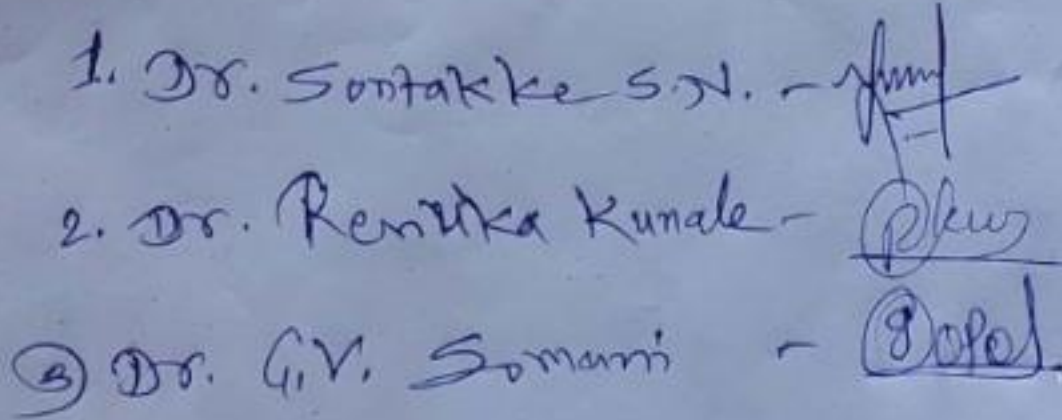 1. Dr. Sontakke S.N. -
2. Dr. Renuka Kunale -
3 Dr. G.V. Somani - Gopal